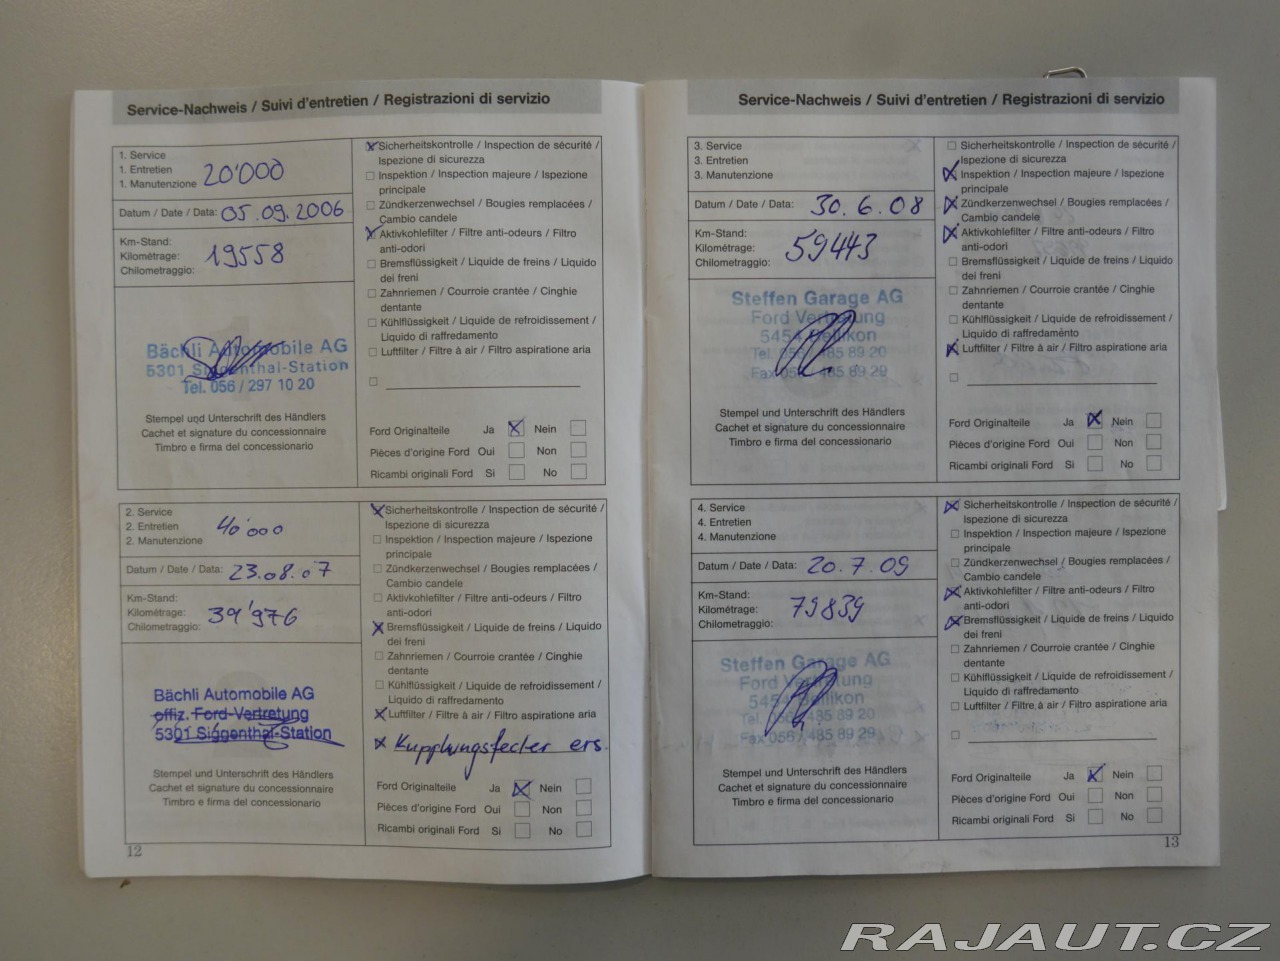 Service-Nachweis / Suivi d'entretien / Registrazioni di servizio
1. Service
1. Entretien
1. Manutenzione
20'000
Datum / Date / Data: 05.09.2006
Km-Stand:
Kilométrage:
Chilometraggio:
19558
Bächli Automobile AG
5301 Siggenthal-Station
Tel. 056 / 297 10 20
Stempel und Unterschrift des Händlers
Cachet et signature du concessionnaire
Timbro e firma del concessionario
Sicherheitskontrolle / Inspection de sécurité /
Ispezione di sicurezza
Inspektion / Inspection majeure / Ispezione
principale
Zündkerzenwechsel / Bougies remplacées /
Cambio candele
Aktivkohlefilter / Filtre anti-odeurs / Filtro
anti-odori
Bremsflüssigkeit / Liquide de freins / Liquido
dei freni
Zahnriemen / Courroie crantée / Cinghie
dentante
Kühlflüssigkeit / Liquide de refroidissement /
Liquido di raffredamento
Luftfilter / Filtre à air / Filtro aspiratione aria
Ford Originalteile Ja Nein
Pièces d'origine Ford Oui Non
Ricambi originali Ford Si No
2. Service
2. Entretien
2. Manutenzione
40'000
Datum / Date / Data: 23.08.07
Km-Stand:
Kilométrage:
Chilometraggio:
39'976
Bächli Automobile AG
offiz. Ford-Vertretung
5301 Siggenthal-Station
Stempel und Unterschrift des Händlers
Cachet et signature du concessionnaire
Timbro e firma del concessionario
Sicherheitskontrolle / Inspection de sécurité /
Ispezione di sicurezza
Inspektion / Inspection majeure / Ispezione
principale
Zündkerzenwechsel / Bougies remplacées /
Cambio candele
Aktivkohlefilter / Filtre anti-odeurs / Filtro
anti-odori
Bremsflüssigkeit / Liquide de freins / Liquido
dei freni
Zahnriemen / Courroie crantée / Cinghie
dentante
Kühlflüssigkeit / Liquide de refroidissement /
Liquido di raffredamento
Luftfilter / Filtre à air / Filtro aspiratione aria
ers.
Ford Originalteile Ja Nein
Pièces d'origine Ford Oui Non
Ricambi originali Ford Si No
12
Service-Nachweis / Suivi d'entretien / Registrazioni di servizio
3. Service
3. Entretien
3. Manutenzione
Datum / Date / Data: 30.6.08
Km-Stand:
Kilométrage:
Chilometraggio:
59443
Steffen Garage AG
Ford Vertretung
5454 Bellikon
Tel. 056 / 485 89 20
Fax 056 / 485 89 29
Stempel und Unterschrift des Händlers
Cachet et signature du concessionnaire
Timbro e firma del concessionario
Sicherheitskontrolle / Inspection de sécurité /
Ispezione di sicurezza
Inspektion / Inspection majeure / Ispezione
principale
Zündkerzenwechsel / Bougies remplacées /
Cambio candele
Aktivkohlefilter / Filtre anti-odeurs / Filtro
anti-odori
Bremsflüssigkeit / Liquide de freins / Liquido
dei freni
Zahnriemen / Courroie crantée / Cinghie
dentante
Kühlflüssigkeit / Liquide de refroidissement /
Liquido di raffredamento
Luftfilter / Filtre à air / Filtro aspiratione aria
Ford Originalteile Ja Nein
Pièces d'origine Ford Oui Non
Ricambi originali Ford Si No
4. Service
4. Entretien
4. Manutenzione
Datum / Date / Data: 20.7.09
Km-Stand:
Kilométrage:
Chilometraggio:
79839
Steffen Garage AG
Ford Vertretung
5454 Bellikon
Tel. 056 / 485 89 20
Fax 056 / 485 89 29
Stempel und Unterschrift des Händlers
Cachet et signature du concessionnaire
Timbro e firma del concessionario
Sicherheitskontrolle / Inspection de sécurité /
Ispezione di sicurezza
Inspektion / Inspection majeure / Ispezione
principale
Zündkerzenwechsel / Bougies remplacées /
Cambio candele
Aktivkohlefilter / Filtre anti-odeurs / Filtro
anti-odori
Bremsflüssigkeit / Liquide de freins / Liquido
dei freni
Zahnriemen / Courroie crantée / Cinghie
dentante
Kühlflüssigkeit / Liquide de refroidissement /
Liquido di raffredamento
Luftfilter / Filtre à air / Filtro aspiratione aria
Ford Originalteile Ja Nein
Pièces d'origine Ford Oui Non
Ricambi originali Ford Si No
13
RAJAUT.CZ